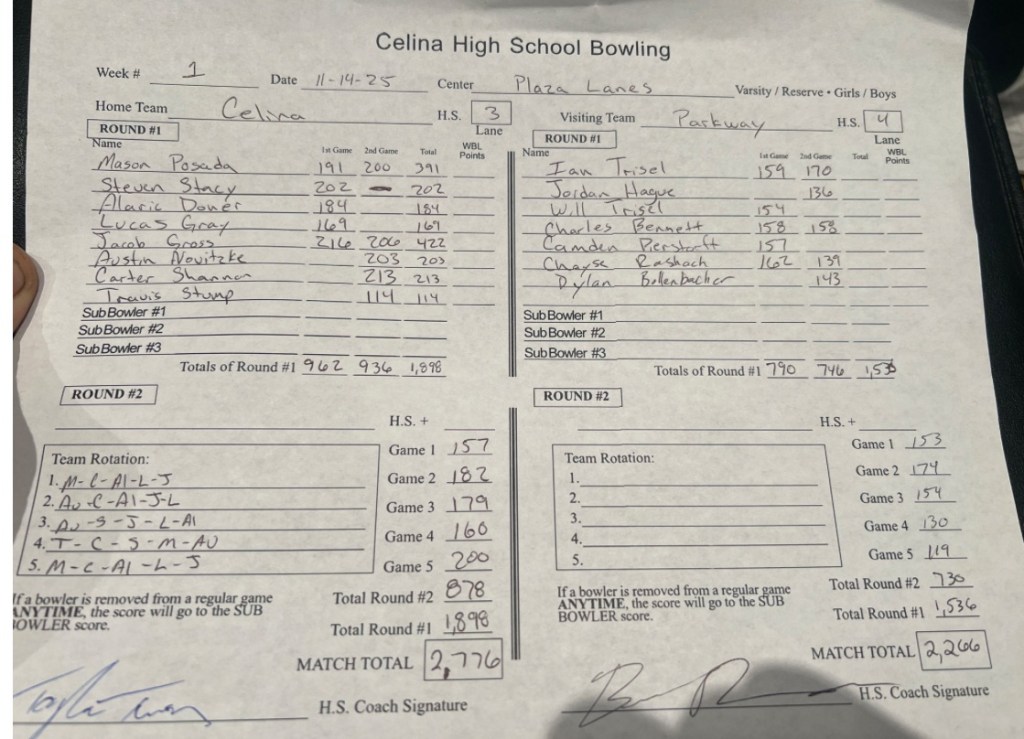 Celina High School Bowling
Week # 1 Date 11-14-25 Center Plaza Lanes Varsity / Reserve • Girls / Boys
Home Team Celina H.S. 3 Lane
ROUND #1
Name 1st Game 2nd Game Total WBL Points
Mason Posada 191 200 391
Steven Stacy 202 - 202
Alaric Doner 184 184
Lucas Gray 169 169
Jacob Gross 216 206 422
Austin Novitzke 203 203
Carter Shannon 213 213
Travis Stump 114 114
Sub Bowler #1
Sub Bowler #2
Sub Bowler #3
Totals of Round #1 962 936 1,898
ROUND #2
H.S. +
Team Rotation:
1. M-C-Al-L-J
2. Au-C-Al-J-L
3. Au-S-J-L-Al
4. T-C-S-M-AU
5. M-C-Al-L-J
Game 1 157
Game 2 182
Game 3 179
Game 4 160
Game 5 200
If a bowler is removed from a regular game
ANYTIME, the score will go to the SUB
BOWLER score.
Total Round #2 878
Total Round #1 1,898
MATCH TOTAL 2,776
H.S. Coach Signature
Visiting Team Parkway H.S. 4 Lane
ROUND #1
Name 1st Game 2nd Game Total WBL Points
Ian Trisel 159 170
Jordan Hague 136
Will Trisel 154
Charles Bennett 158 158
Camden 157
Chayse Rasbach 162 139
Dylan Bollenbacher 143
Sub Bowler #1
Sub Bowler #2
Sub Bowler #3
Totals of Round #1 790 746 1,536
ROUND #2
H.S. +
Team Rotation:
1.
2.
3.
4.
5.
Game 1 153
Game 2 174
Game 3 154
Game 4 130
Game 5 119
If a bowler is removed from a regular game
ANYTIME, the score will go to the SUB
BOWLER score.
Total Round #2 730
Total Round #1 1,536
MATCH TOTAL 2,266
H.S. Coach Signature